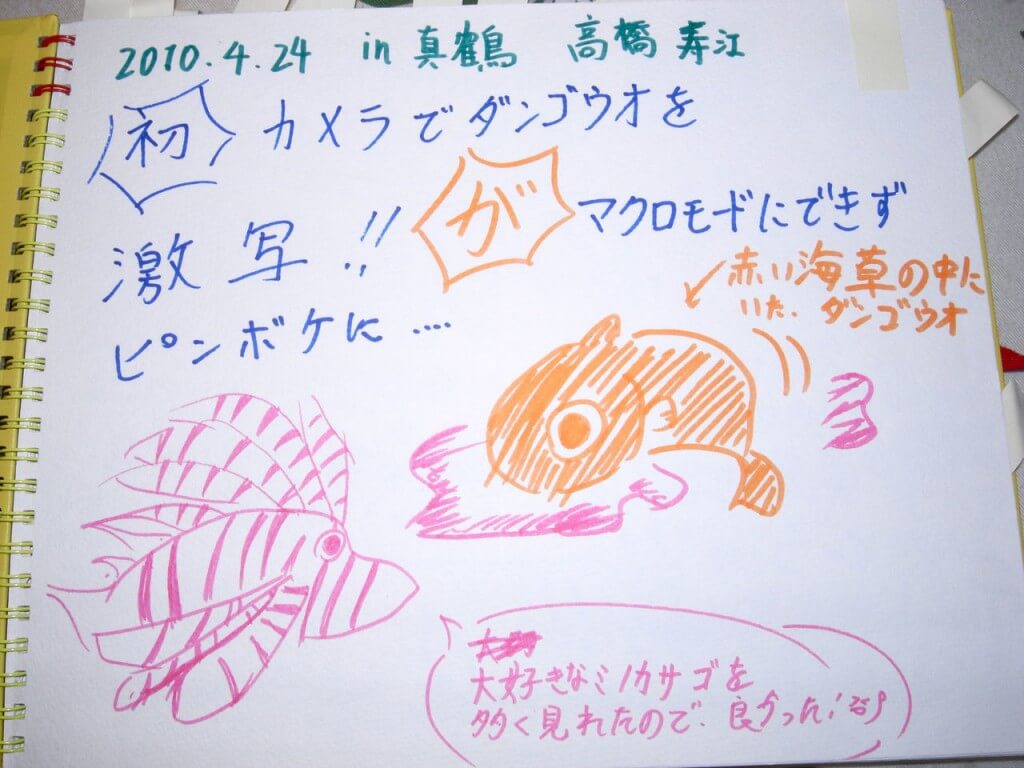 2010.4.24 in 真鶴 高橋 寿江
初 カメラでダンゴウオを
激写!! が マクロモードにできず
ピンボケに ‥‥
赤い海草の中に
いた、ダンゴウオ
大好きなミノカサゴを
多く見れたので、良かった!